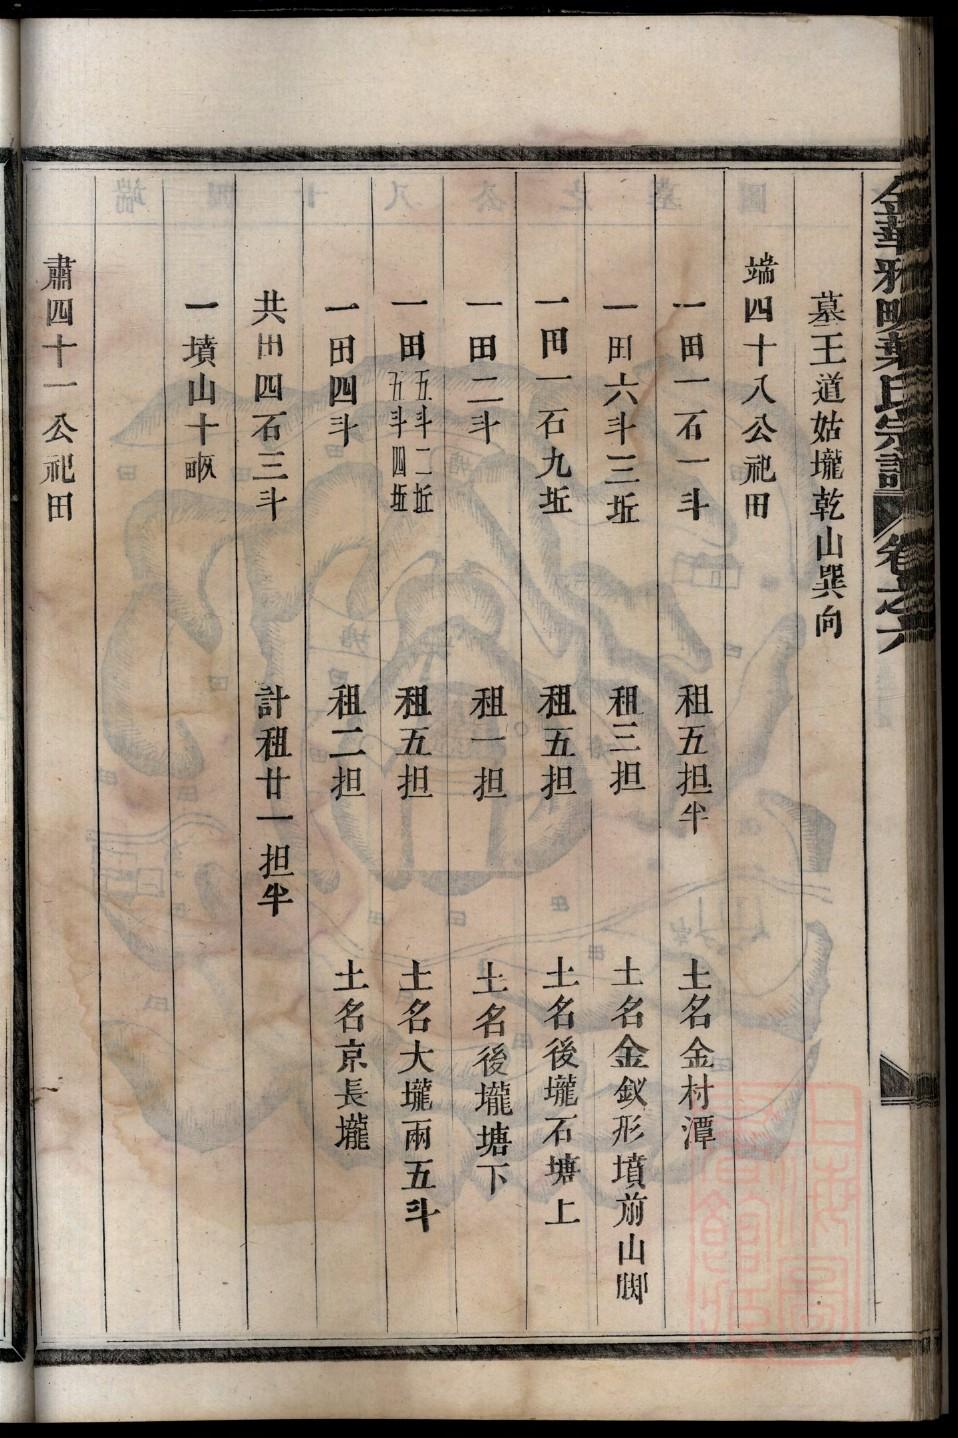 金華雅畈葉氏宗譜 卷之六
墓王道姑壠乾山巽向
端四十八公祀田
一田一石一斗 租五担半 土名金村潭
一田六斗三坵 租三担 土名金釵形墳前山脚
一田一石九坵 租五担 土名後壠石塘上
一田二斗 租一担 土名後壠塘下
一田五斗二坵五斗四坵 租五担 土名大壠兩五斗
一田四斗 租二担 土名京長壠
共田四石三斗 計租廿一担半
一墳山十畝
肅四十一公祀田